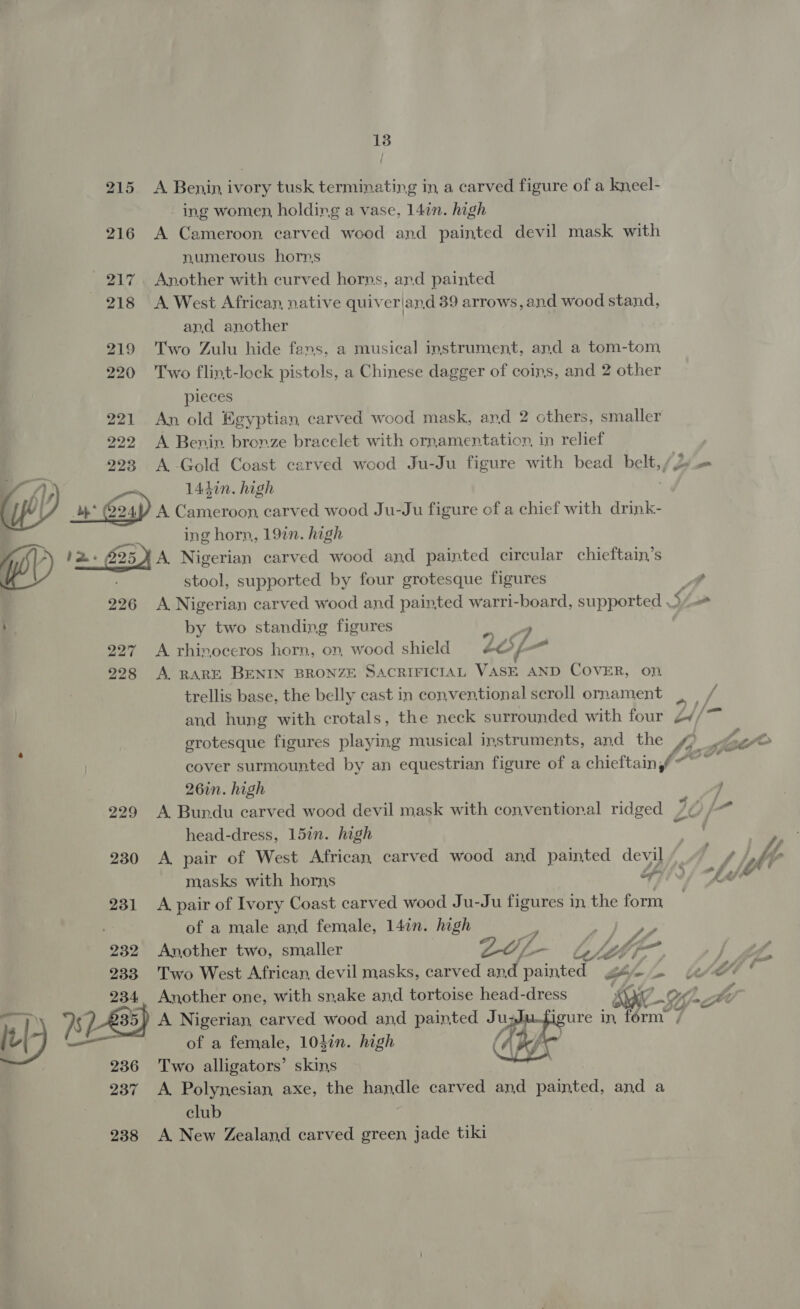 13
215 A Benin ivory tusk terminating in a carved figure of a kneel-
ing women holding a vase, 14in. high
216 A Cameroon carved wood and painted devil mask with
numerous horns
217 Another with curved horns, and painted
218 A West African native quiver and 39 arrows, and wood stand,
and another
219 Two Zulu hide fans, a musical instrument, and a tom-tom
220 Two flint-lock pistols, a Chinese dagger of coins, and 2 other
pieces
221 An old Egyptian carved wood mask, and 2 others, smaller
222 A Benin bronze bracelet with ornamentation in relief
223 A Gold Coast carved wood Ju-Ju figure with bead belt,
14½in. high
224 A Cameroon carved wood Ju-Ju figure of a chief with drink-
ing horn, 19in. high
225 A Nigerian carved wood and painted circular chieftain's
stool, supported by four grotesque figures
226 A Nigerian carved wood and painted warri-board, supported
by two standing figures
227 A rhinoceros horn, on wood shield
228 A RARE BENIN BRONZE SACRIFICIAL VASE AND COVER, on
trellis base, the belly cast in conventional scroll ornament
and hung with crotals, the neck surrounded with four
grotesque figures playing musical instruments, and the
cover surmounted by an equestrian figure of a chieftain,
26in. high
229 A Bundu carved wood devil mask with conventional ridged
head-dress, 15in. high
230 A pair of West African carved wood and painted devil
masks with horns
231 A pair of Ivory Coast carved wood Ju-Ju figures in the form
of a male and female, 14in. high
232 Another two, smaller
233 Two West African devil masks, carved and painted
234 Another one, with snake and tortoise head-dress
235 A Nigerian carved wood and painted Ju-Ju figure in form
of a female, 10½in. high
236 Two alligators' skins
237 A Polynesian axe, the handle carved and painted, and a
club
238 A New Zealand carved green jade tiki